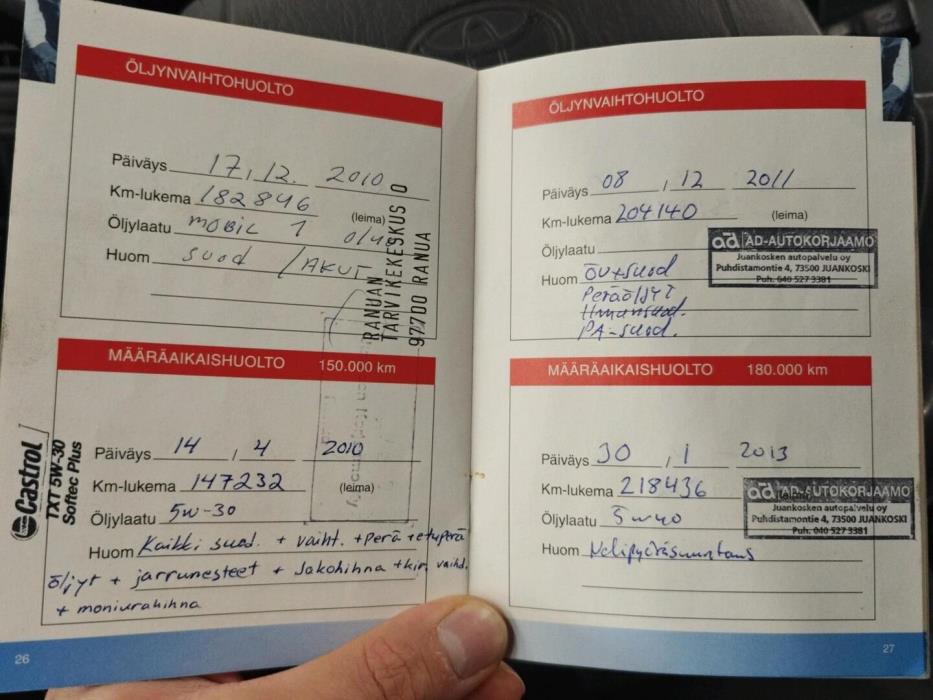 ÖLJYNVAIHTOHUOLTO
Päiväys 17. 12. 2010
Km-lukema 182846
(leima)
Öljylaatu MOBIL 1 0/40
Huom suod / AKUT
RANUAN
TARVIKEKESKUS O
97700 RANUA
MÄÄRÄAIKAISHUOLTO 150.000 km
Päiväys 14 / 4 2010
Km-lukema 147232 (leima)
Öljylaatu 5W-30
Huom Kaikki suod. + vaiht. + perä + etuperä
öljyt + jarrunesteet + Jakohihna + kir. vaihd.
+ moniurahihna
Castrol
TXT 5W-30
Softec Plus
26
ÖLJYNVAIHTOHUOLTO
Päiväys 08 / 12 2011
Km-lukema 204140 (leima)
Öljylaatu
Huom ÖV+suod
Peräöljyt
Ilmansuod.
PA-suod.
ad AD-AUTOKORJAAMO
Juankosken autopalvelu oy
Puhdistamontie 4, 73500 JUANKOSKI
Puh. 040 527 3381
MÄÄRÄAIKAISHUOLTO 180.000 km
Päiväys 30 / 1 2013
Km-lukema 218436
Öljylaatu 5W40
Huom Nelipyöräsuuntaus
ad AD-AUTOKORJAAMO
Juankosken autopalvelu oy
Puhdistamontie 4, 73500 JUANKOSKI
Puh. 040 527 3381
27